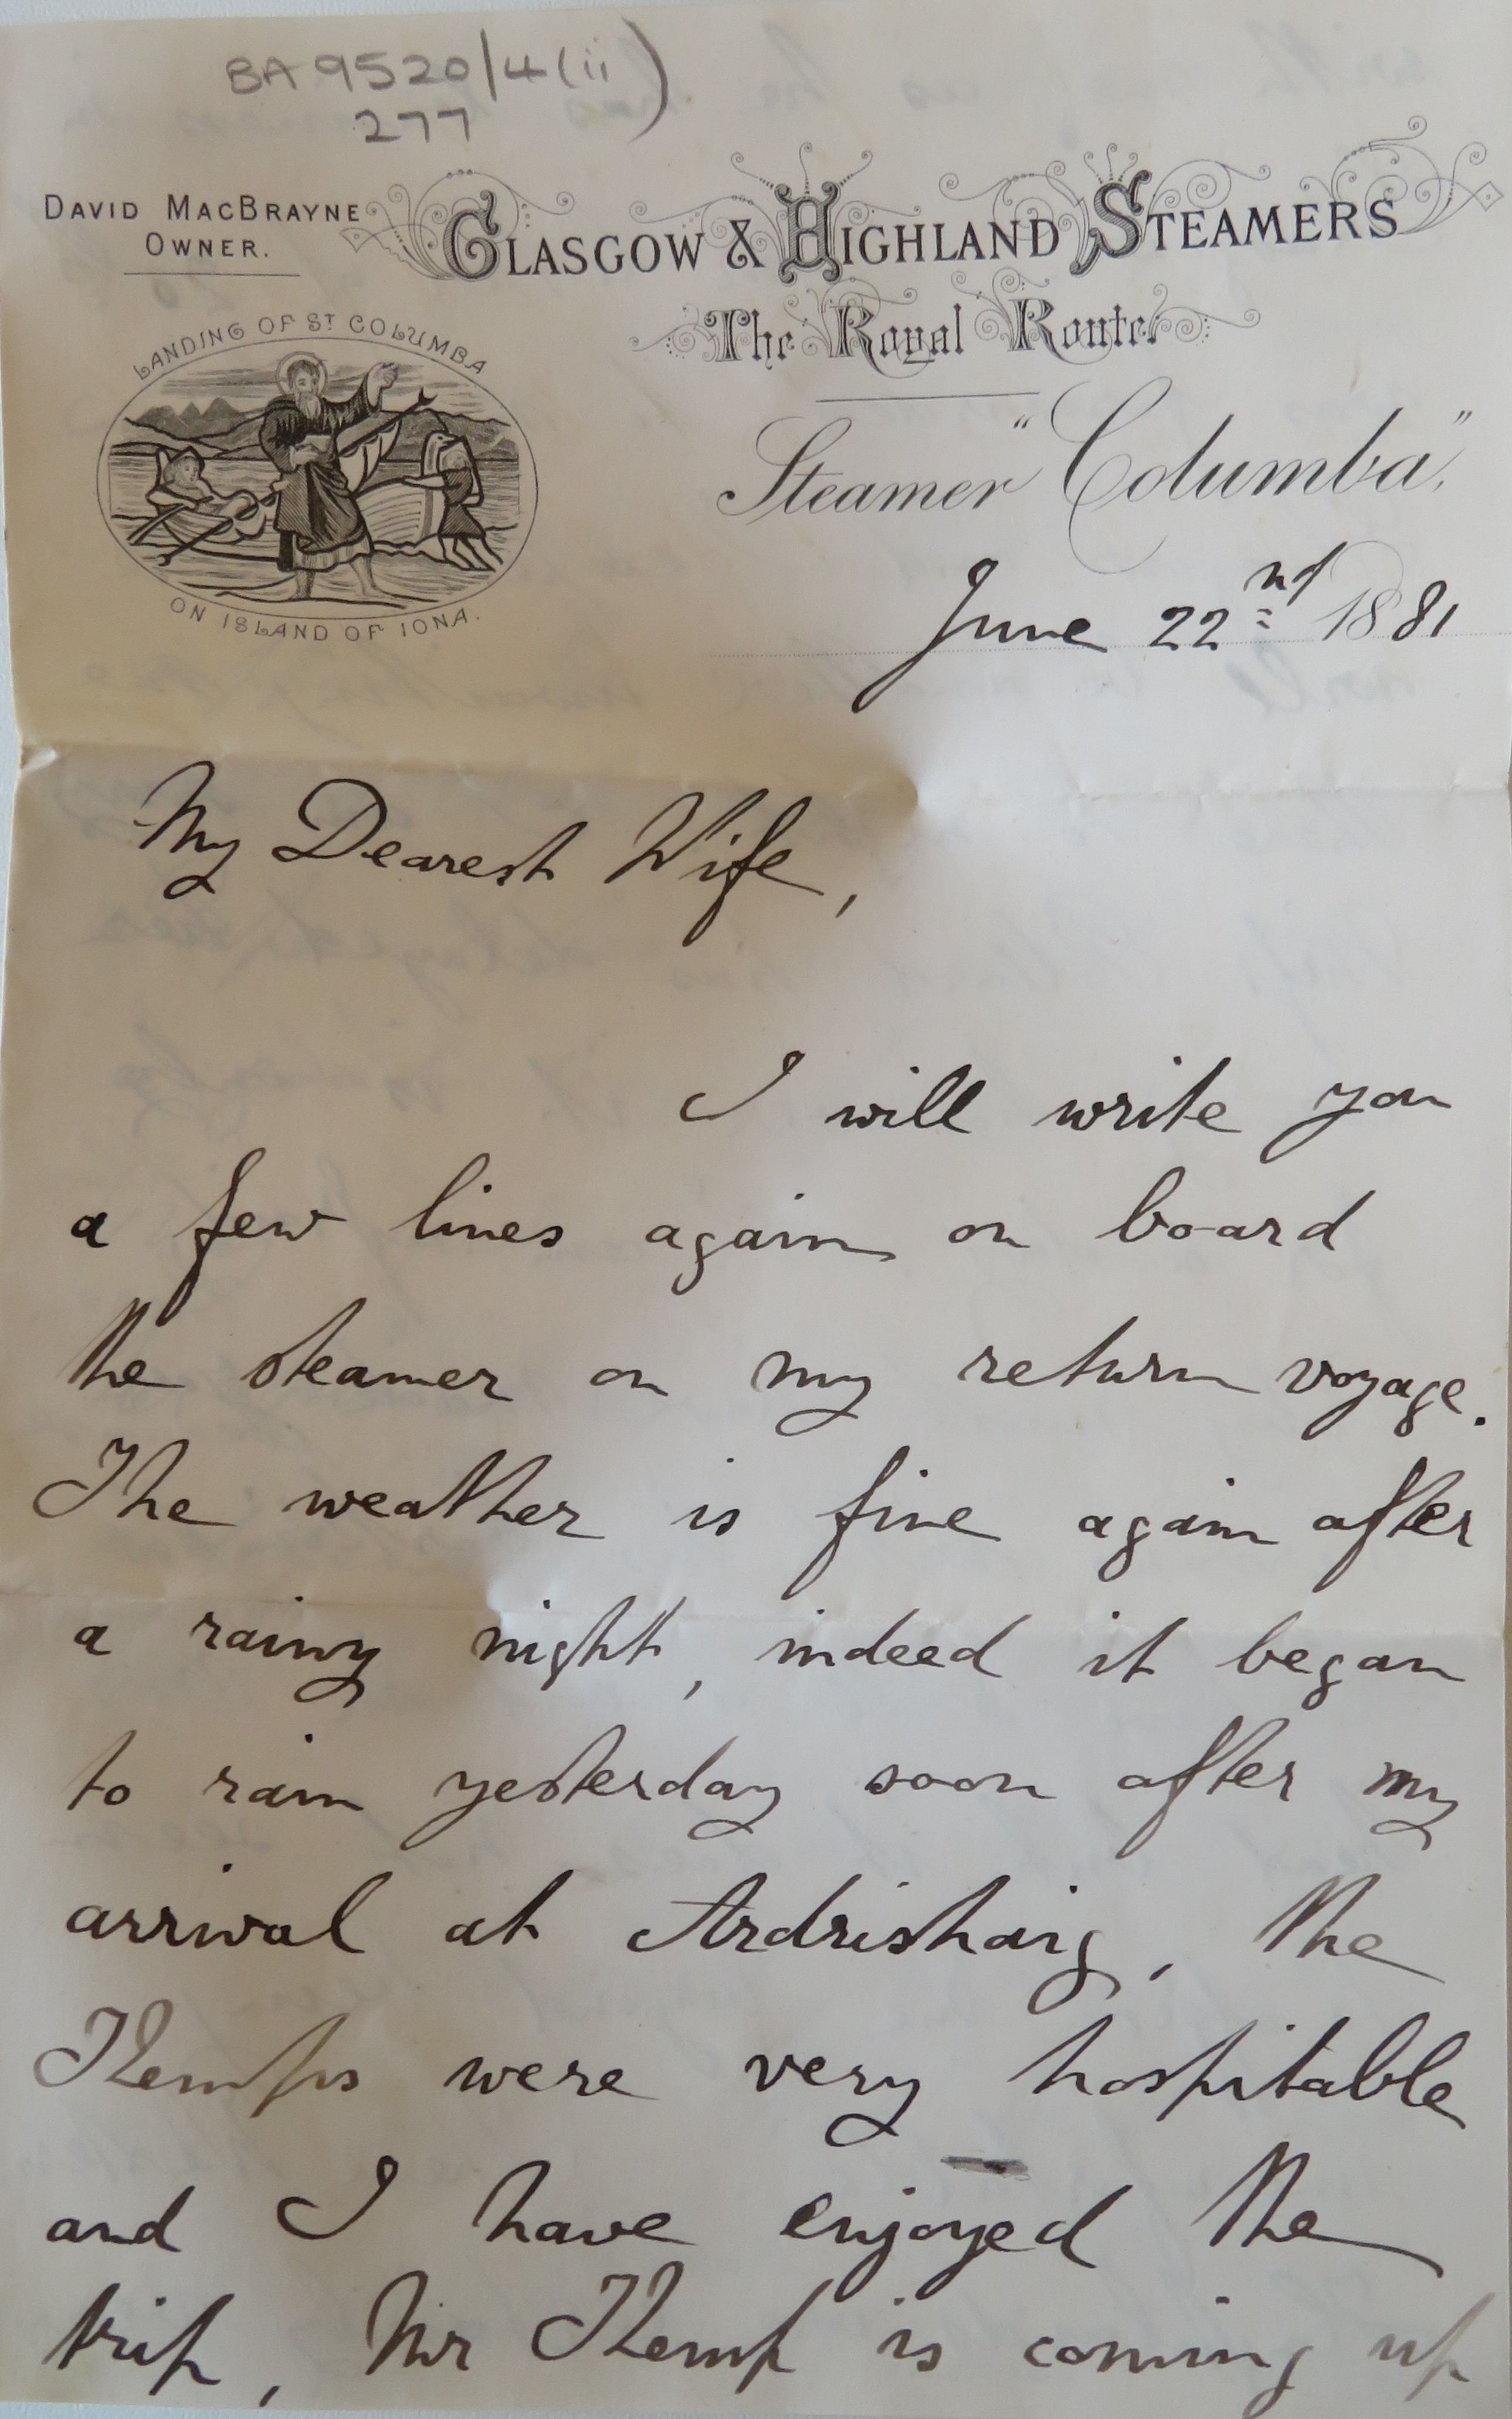 BA 9520/4(ii)
277
DAVID MACBRAYNE
OWNER.
GLASGOW & HIGHLAND STEAMERS
The Royal Route
LANDING OF ST COLUMBA
ON ISLAND OF IONA.
Steamer "Columba",
June 22nd 1881
My Dearest Wife,
I will write you
a few lines again on board
the steamer on my return voyage.
The weather is fine again after
a rainy night, indeed it began
to rain yesterday soon after my
arrival at Ardrishaig, the
Kemps were very hospitable
and I have enjoyed the
trip, Mr Kemp is coming up